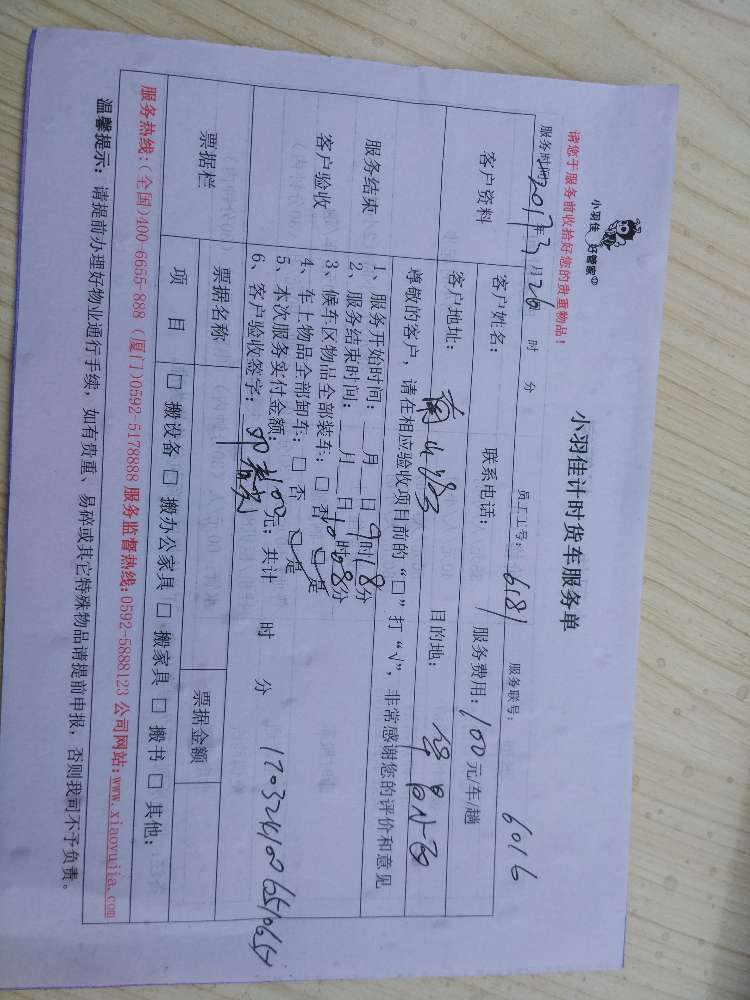 小羽佳 好管家
小羽佳计时货车服务单
请您于服务前收拾好您的贵重物品！
服务时间2017年3月26 时 分 员工工号：6181 服务联号：6016
客户资料
客户姓名： 联系电话： 服务费用：100元/车/趟
客户地址： 南山路 目的地：
尊敬的客户，请在相应验收项目前的“□”打“√”，非常感谢您的评价和意见
服务结束
客户验收
1、服务开始时间：__月__日9时18分
2、服务结束时间：__月__日10时08分
3、候车区物品全部装车：□ 否 □ 是
4、车上物品全部卸车：□ 否 □ 是
5、本次服务实付金额：100元；共计 时 分
6、客户验收签字：
票据栏
票据名称 票据金额
项 目 □ 搬设备 □ 搬办公家具 □ 搬家具 □ 搬书 □ 其他：
服务热线：(全国)400-6655-888 (厦门)0592-5178888 服务监督热线：0592-5888123 公司网站：www.xiaoyujia.com
温馨提示：请提前办理好物业通行手续，如有贵重、易碎或其它特殊物品请提前申报，否则我司不予负责。